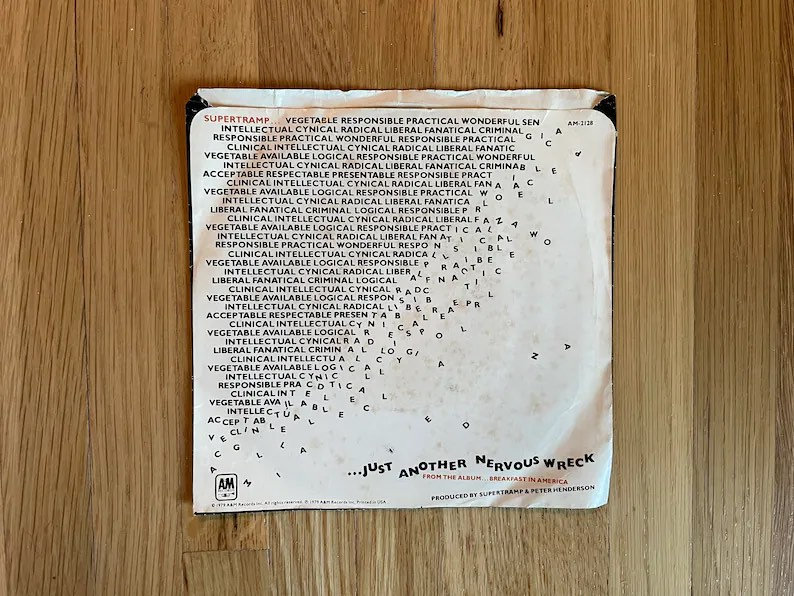 SUPERTRAMP... VEGETABLE RESPONSIBLE PRACTICAL WONDERFUL SEN
AM-2128
INTELLECTUAL CYNICAL RADICAL LIBERAL FANATICAL CRIMINAL
RESPONSIBLE PRACTICAL WONDERFUL RESPONSIBLE PRACTICAL G I A
CLINICAL INTELLECTUAL CYNICAL RADICAL LIBERAL FANATIC
VEGETABLE AVAILABLE LOGICAL RESPONSIBLE PRACTICAL WONDERFUL
INTELLECTUAL CYNICAL RADICAL LIBERAL FANATICAL CRIMINABLE
ACCEPTABLE RESPECTABLE PRESENTABLE RESPONSIBLE PRACT
CLINICAL INTELLECTUAL CYNICAL RADICAL LIBERAL FANA A C
VEGETABLE AVAILABLE LOGICAL RESPONSIBLE PRACTICAL W
INTELLECTUAL CYNICAL RADICAL LIBERAL FANATICA L
LIBERAL FANATICAL CRIMINAL LOGICAL RESPONSIBLE P R
CLINICAL INTELLECTUAL CYNICAL RADICAL LIBERAL F A Z A
VEGETABLE AVAILABLE LOGICAL RESPONSIBLE PRACTICAL
INTELLECTUAL CYNICAL RADICAL LIBERAL FANATICAL W O
RESPONSIBLE PRACTICAL WONDERFUL RESPONSIBL
CLINICAL INTELLECTUAL CYNICAL RADICAL
VEGETABLE AVAILABLE LOGICAL RESPONSIBLE P
INTELLECTUAL CYNICAL RADICAL LIBER
LIBERAL FANATICAL CRIMINAL LOGICAL
CLINICAL INTELLECTUAL CYNICAL RADC
VEGETABLE AVAILABLE LOGICAL RESPONSIB
INTELLECTUAL CYNICAL RADICAL LIBERA
ACCEPTABLE RESPECTABLE PRESENTAB
CLINICAL INTELLECTUAL CYNICAL
VEGETABLE AVAILABLE LOGICAL R E S P O L
INTELLECTUAL CYNICAL R A D I
LIBERAL FANATICAL CRIMIN A L LOGI
CLINICAL INTELLECTU A L C Y
VEGETABLE AVAILABLE LOGICAL
INTELLECTUAL CYNIC L
RESPONSIBLE PRA
CLINICAL INT
VEGETABLE AVAIL
INTELLECTUAL
ACCEPTAB
...JUST ANOTHER NERVOUS WRECK
FROM THE ALBUM... BREAKFAST IN AMERICA
PRODUCED BY SUPERTRAMP & PETER HENDERSON
A&M
© 1979 A&M Records Inc. All rights reserved. ℗ 1979 A&M Records Inc. Printed in USA